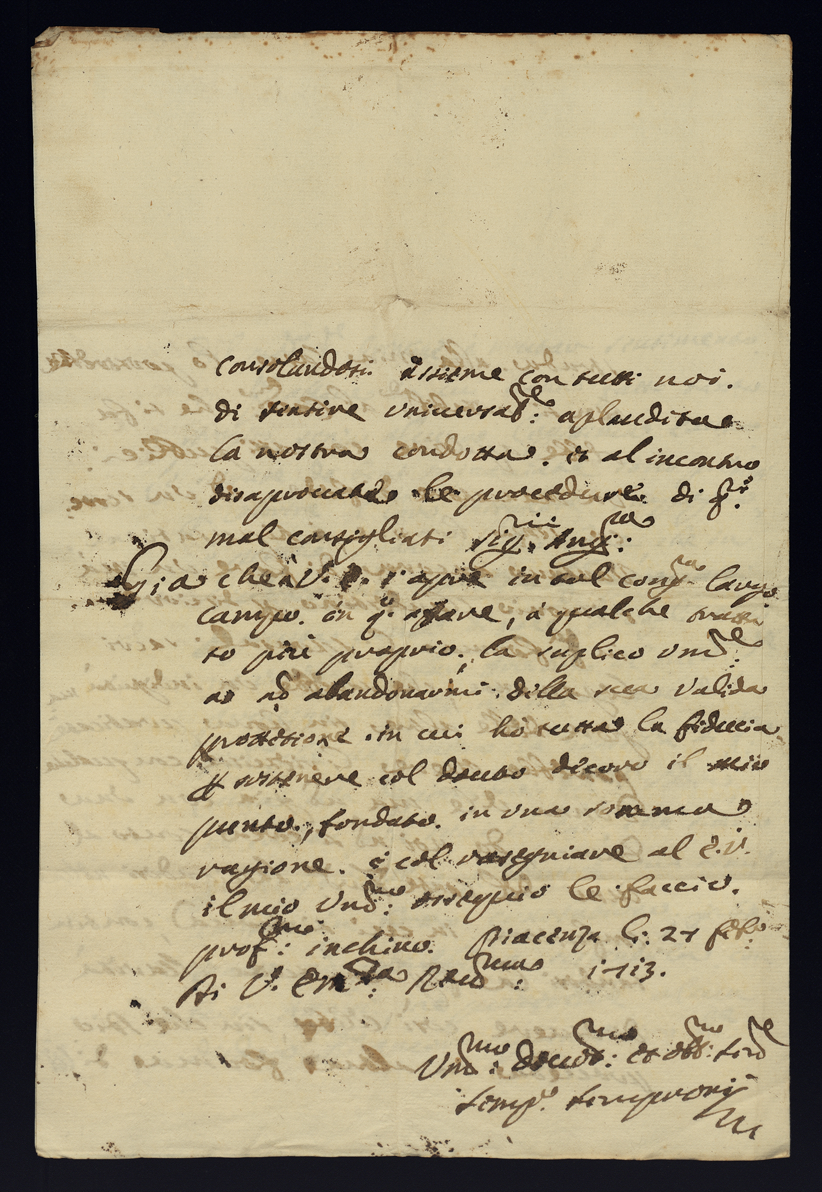 consolandosi assieme con tutti noi.
di sentire universal:te aplaudita
la nostra condotta. et al incontro
disaprovate le procedure di q.ti
mal consigliati Sig.rii
Gia che V. E. s'apre in tal largo
campo. in q.o affare, à qualche tratta
to più proprio. la suplico um:te
a nõ abandonarmi della sua valida
protetione. in cui hò tutta la fiducia
sostenere col douuto decoro il mio
punto, fondato in una somma
ragione. e col rasegniare al E. V.
il mio um:mo ossequio le faccio.
prof:mo inchino. Piacenza li: 27 feb:o
Di V. Em:za Reu:ma 1713.
Um:mo deuot:mo et obb:mo ser:e
Semp.